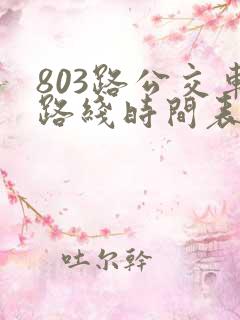 803路公交車
路綫時間表
吐尔幹